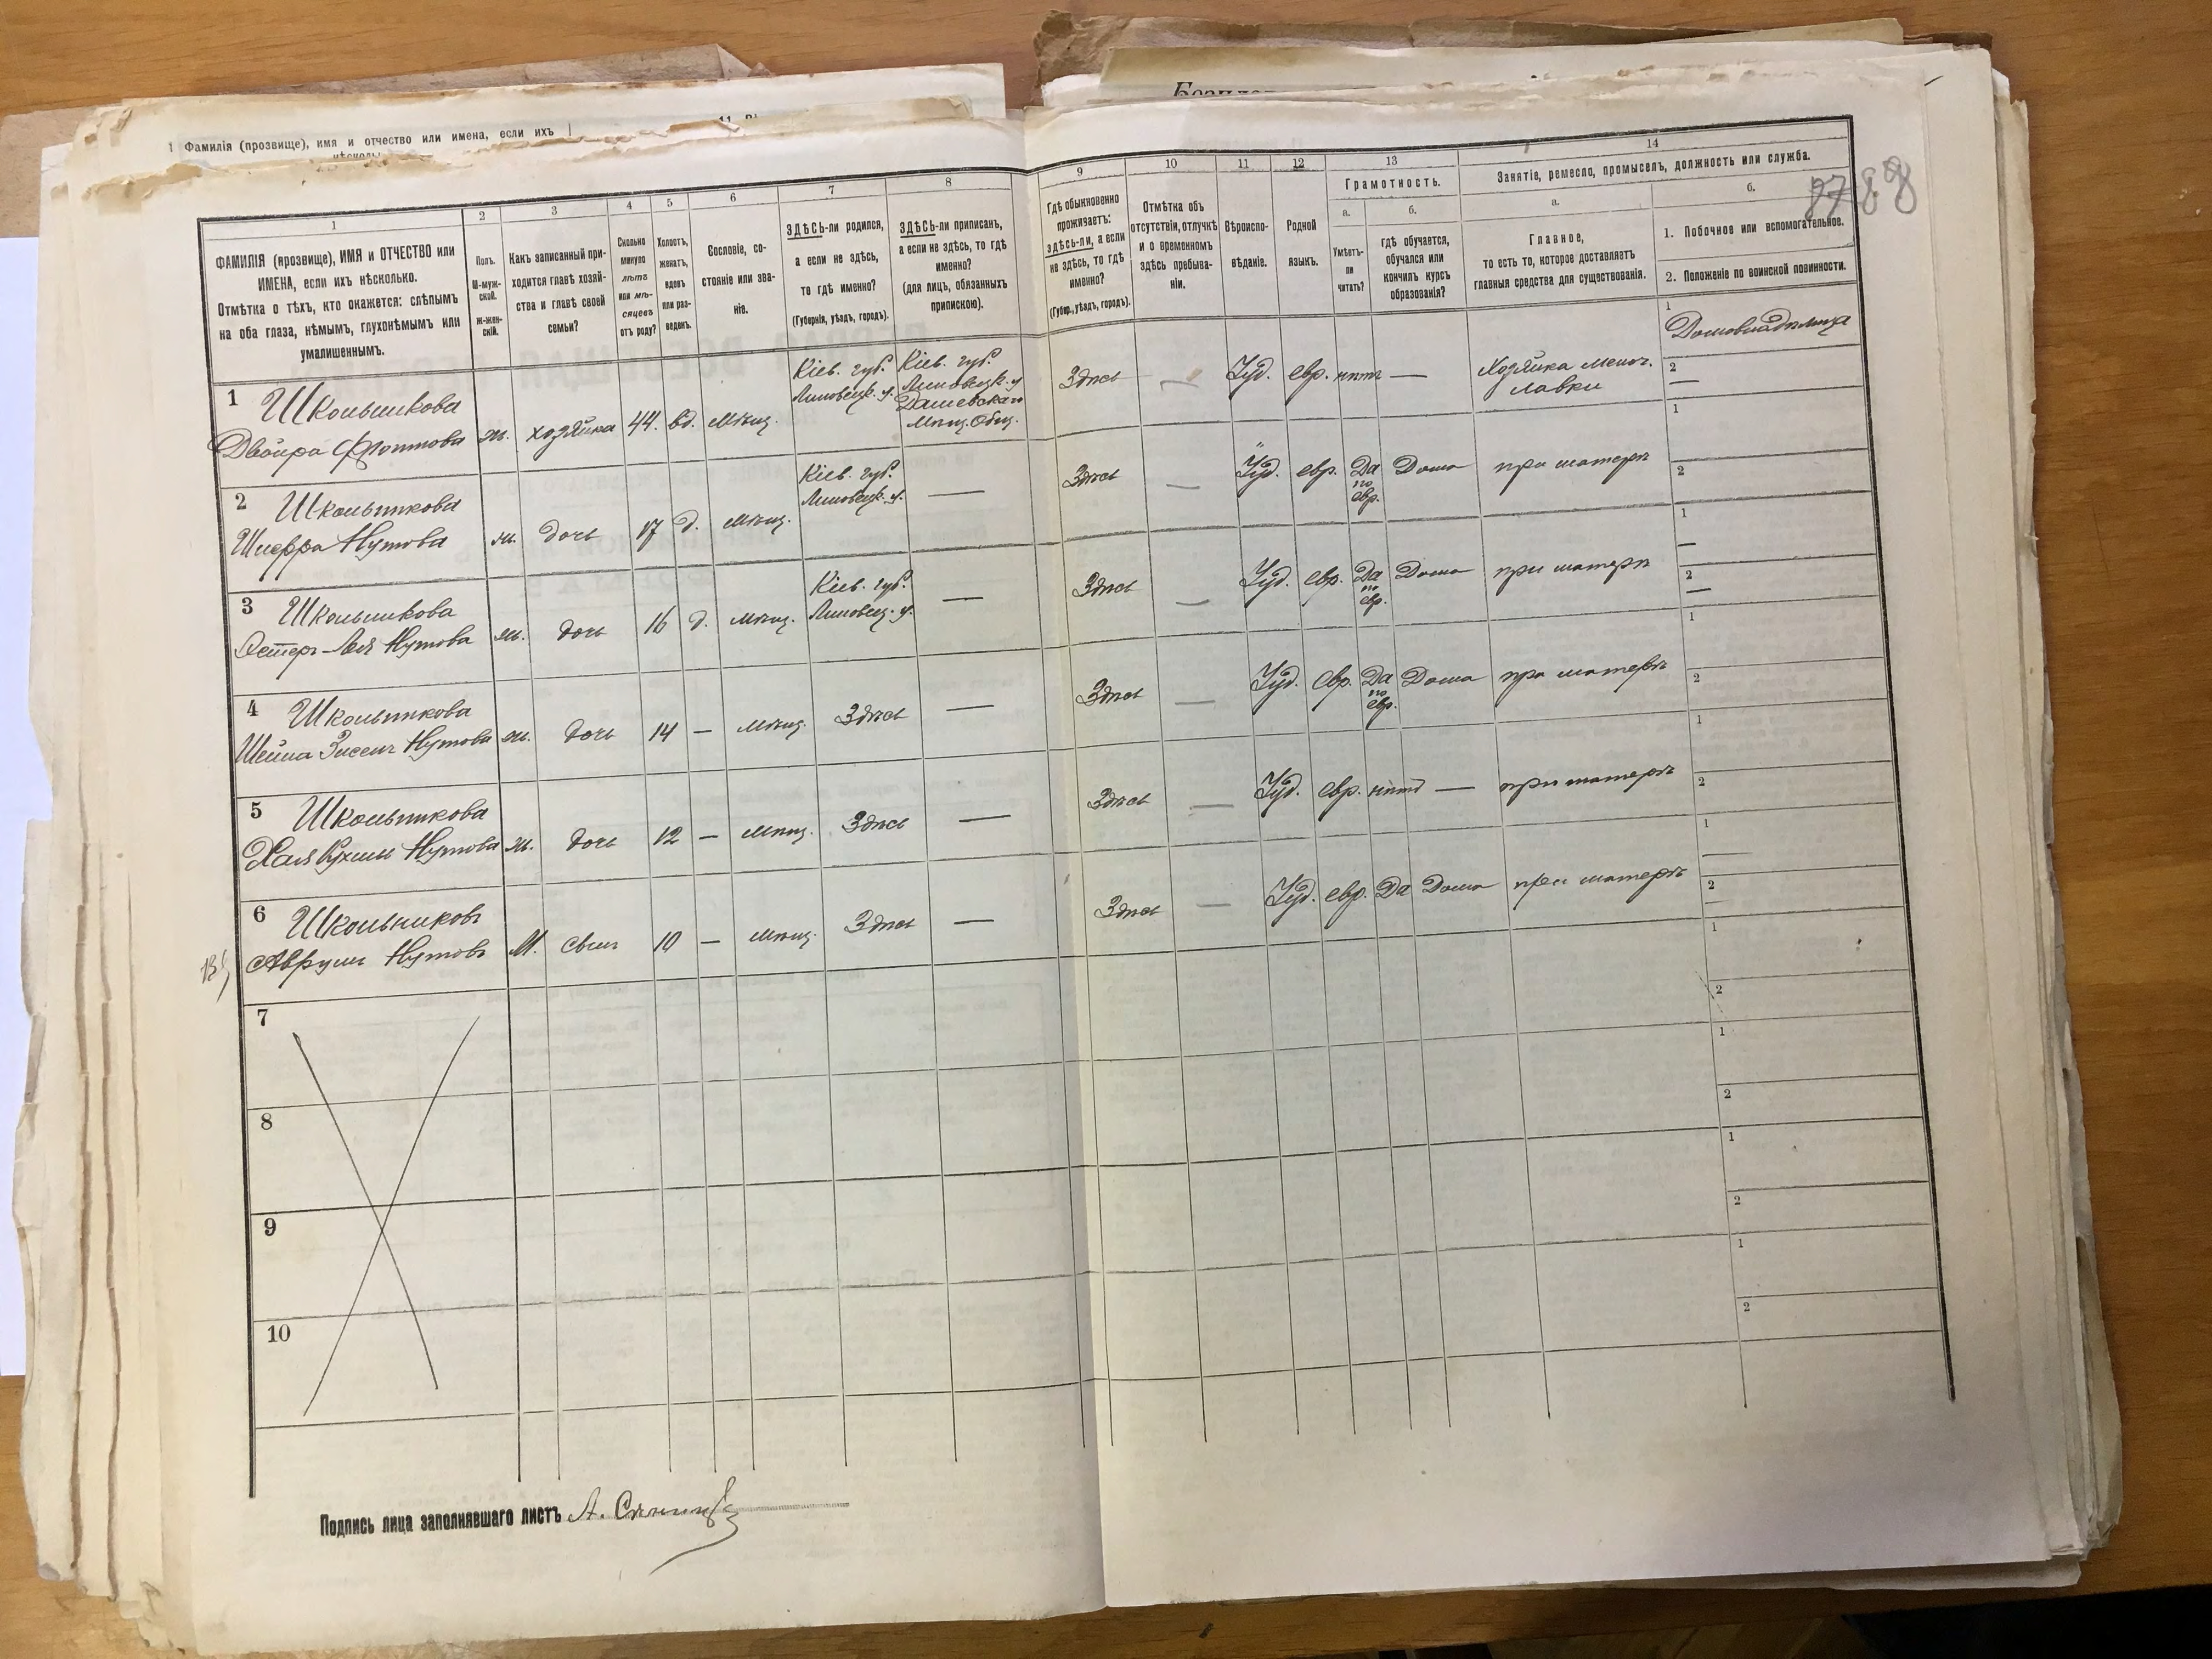 1 Фамилія (прозвище), имя и отчество или имена, если ихъ
нѣсколь
1
2
3
4
5
6
7
8
9
10
11
12
13
14
ФАМИЛІЯ (прозвище), ИМЯ и ОТЧЕСТВО или
ИМЕНА, если ихъ нѣсколько.
Отмѣтка о тѣхъ, кто окажется: слѣпымъ
на оба глаза, нѣмымъ, глухонѣмымъ или
умалишеннымъ.
Полъ.
М-муж-
ской.
ж-жен-
скій.
Какъ записанный при-
ходится главѣ хозяй-
ства и главѣ своей
семьи?
Сколько
минуло
лѣтъ
или мѣ-
сяцевъ
отъ роду?
Холостъ,
женатъ,
вдовъ
или раз-
веденъ.
Сословіе, со-
стояніе или зва-
ніе.
ЗДѢСЬ-ли родился,
а если не здѣсь,
то гдѣ именно?
(Губернія, уѣздъ, городъ).
ЗДѢСЬ-ли приписанъ,
а если не здѣсь, то гдѣ
именно?
(для лицъ, обязанныхъ
припискою).
Гдѣ обыкновенно
проживаетъ:
здѣсь-ли, а если
не здѣсь, то гдѣ
именно?
(Губер., уѣздъ, городъ).
Отмѣтка объ
отсутствіи, отлучкѣ
и о временномъ
здѣсь пребыва-
ніи.
Вѣроиспо-
вѣданіе.
Родной
языкъ.
Грамотность.
а.
б.
Умѣетъ-
ли
читать?
гдѣ обучается,
обучался или
кончилъ курсъ
образованія?
Занятіе, ремесло, промыселъ, должность или служба.
а.
б.
Главное,
то есть то, которое доставляетъ
главныя средства для существованія.
1. Побочное или вспомогательное.
2. Положеніе по воинской повинности.
88
1
Школьникова
Двойра
ж.
хозяйка
44.
вд.
мѣщ.
Кіев. губ.
Липовецк. у.
Кіев. губ.
Липовецк. у
Дашевскаго
Мѣщ. Общ.
Здѣсь
—
Іуд.
евр.
нѣтъ
—
Хозяйка мелоч.
лавки
1
Домовладѣлица
2
—
2
Школьникова
Шифра Нутова
ж.
дочь
17
д.
мѣщ.
Кіев. губ.
Липовецк. у.
—
Здѣсь
—
Іуд.
евр.
Да
по
евр.
Дома
при матери
1
2
3
Школьникова
Эстеръ-Лея Нутова
ж.
дочь
16
д.
мѣщ.
Кіев. губ.
Липовец. у.
—
Здѣсь
—
Іуд.
евр.
Да
по
евр.
Дома
при матери
1
—
2
—
4
Школьникова
Шейна Нутова
ж.
дочь
14
—
мѣщ.
Здѣсь
—
Здѣсь
—
Іуд.
евр.
Да
по
евр.
Дома
при матери
1
2
5
Школьникова
Хая Рухля Нутова
ж.
дочь
12
—
мѣщ.
Здѣсь
—
Здѣсь
—
Іуд.
евр.
нѣтъ
—
при матери
1
2
6
Школьниковъ
Аврумъ Нутовъ
М.
сынъ
10
—
мѣщ.
Здѣсь
—
Здѣсь
—
Іуд.
евр.
Да
Дома
при матери
1
—
2
—
7
1
2
8
1
2
9
1
2
10
1
2
Подпись лица заполнявшаго листъ А.